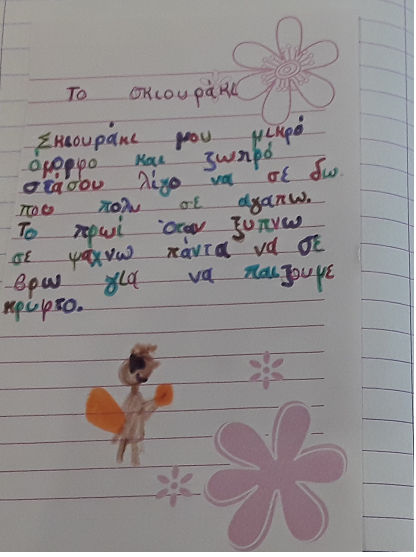 Το σκιουράκι
Σκιουράκι μου μικρό
όμορφο και ζωηρό
στάσου λίγο να σε δω.
που πολυ σε αγαπω.
Το πρωί όταν ξυπνω
σε ψαχνω πάντα να σε
βρω για να παιξουμε
κρυφτο.